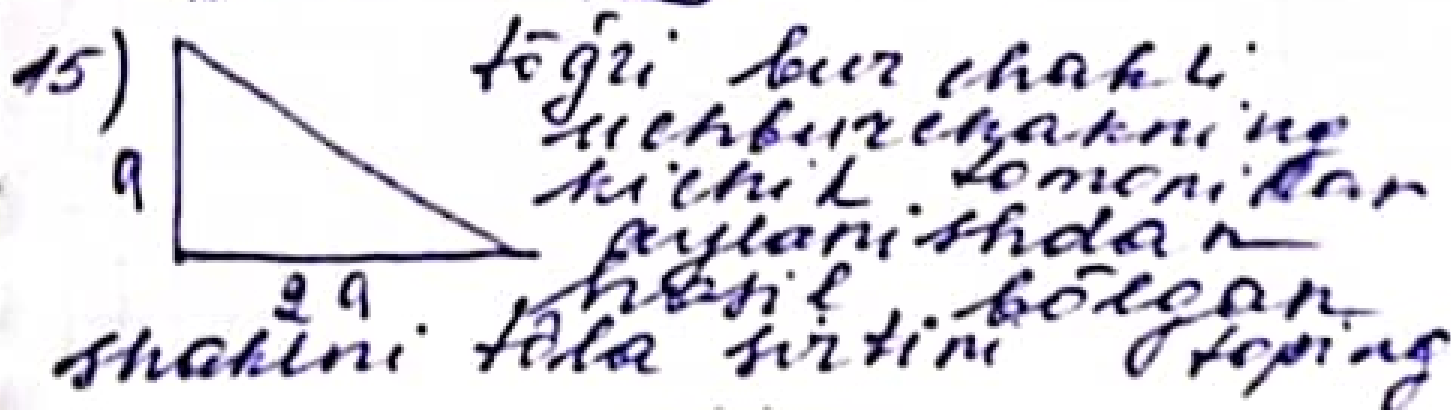 15) tōğri burchakli
uchburchakning
a kichik tomonidan
aylanishdan
2a hosil bōlgan
shaklni tōla sirtini toping